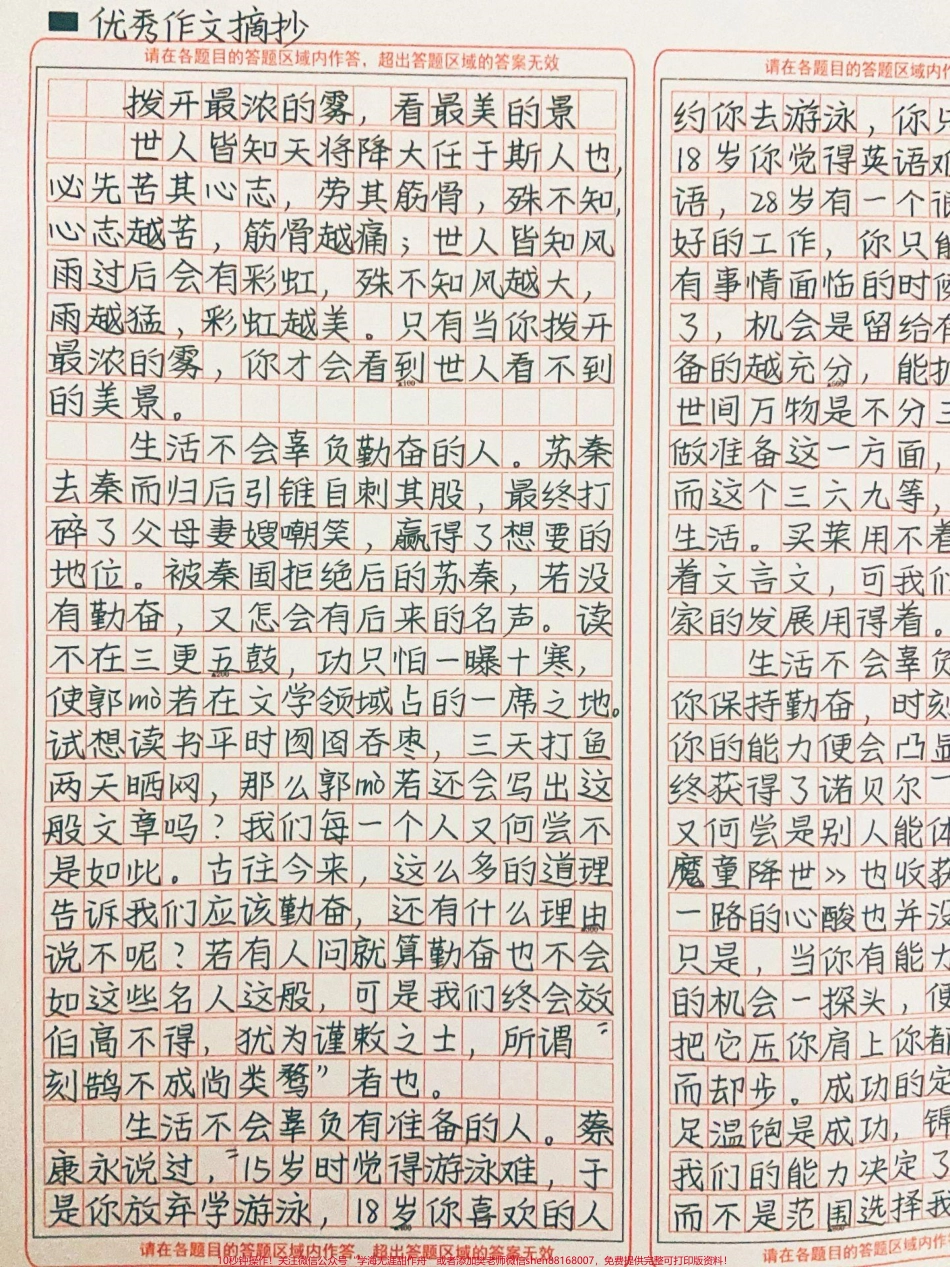 优秀作文摘抄
请在各题目的答题区域内作答，超出答题区域的答案无效
拨开最浓的雾，看最美的景
世人皆知天将降大任于斯人也，
必先苦其心志，劳其筋骨，殊不知，
心志越苦，筋骨越痛；世人皆知风
雨过后会有彩虹，殊不知风越大，
雨越猛，彩虹越美。只有当你拨开
最浓的雾，你才会看到世人看不到
▲100
的美景。
生活不会辜负勤奋的人。苏秦
去秦而归后引锥自刺其股，最终打
碎了父母妻嫂嘲笑，赢得了想要的
地位。被秦国拒绝后的苏秦，若没
有勤奋，又怎会有后来的名声。读
不在三更五鼓，功只怕一曝十寒，
▲200
使郭mò若在文学领域占的一席之地。
试想读书平时囫囵吞枣，三天打鱼
两天晒网，那么郭mò若还会写出这
般文章吗？我们每一个人又何尝不
是如此。古往今来，这么多的道理
告诉我们应该勤奋，还有什么理由
▲300
说不呢？若有人问就算勤奋也不会
如这些名人这般，可是我们终会效
伯高不得，犹为谨敕之士，所谓“
刻鹄不成尚类鹜”者也。
生活不会辜负有准备的人。蔡
康永说过，“15岁时觉得游泳难，于
是你放弃学游泳，18岁你喜欢的人
▲400
请在各题目的答题区域内作答，超出答题区域的答案无效
请在各题目的答题区域内作
约你去游泳，你只
18岁你觉得英语难
语，28岁有一个
好的工作，你只能
有事情面临的时候
了，机会是留给有
备的越充分，能扩
▲500
世间万物是不分三
做准备这一方面，
而这个三六九等，
生活。买菜用不着
着文言文，可我们
家的发展用得着。
生活不会辜负
你保持勤奋，时刻
你的能力便会凸显
终获得了诺贝尔
又何尝是别人能体
魔童降世》也收获
一路的心酸也并没
只是，当你有能力
的机会一探头，便
把它压你肩上你都
而却步。成功的定
足温饱是成功，锦
我们的能力决定了
而不是范围选择我
▲800
请在各题目的答
10秒钟操作！关注微信公众号“学海无涯甜作舟”或者添加吴老师微信shen88168007，免费提供完整可打印版资料！